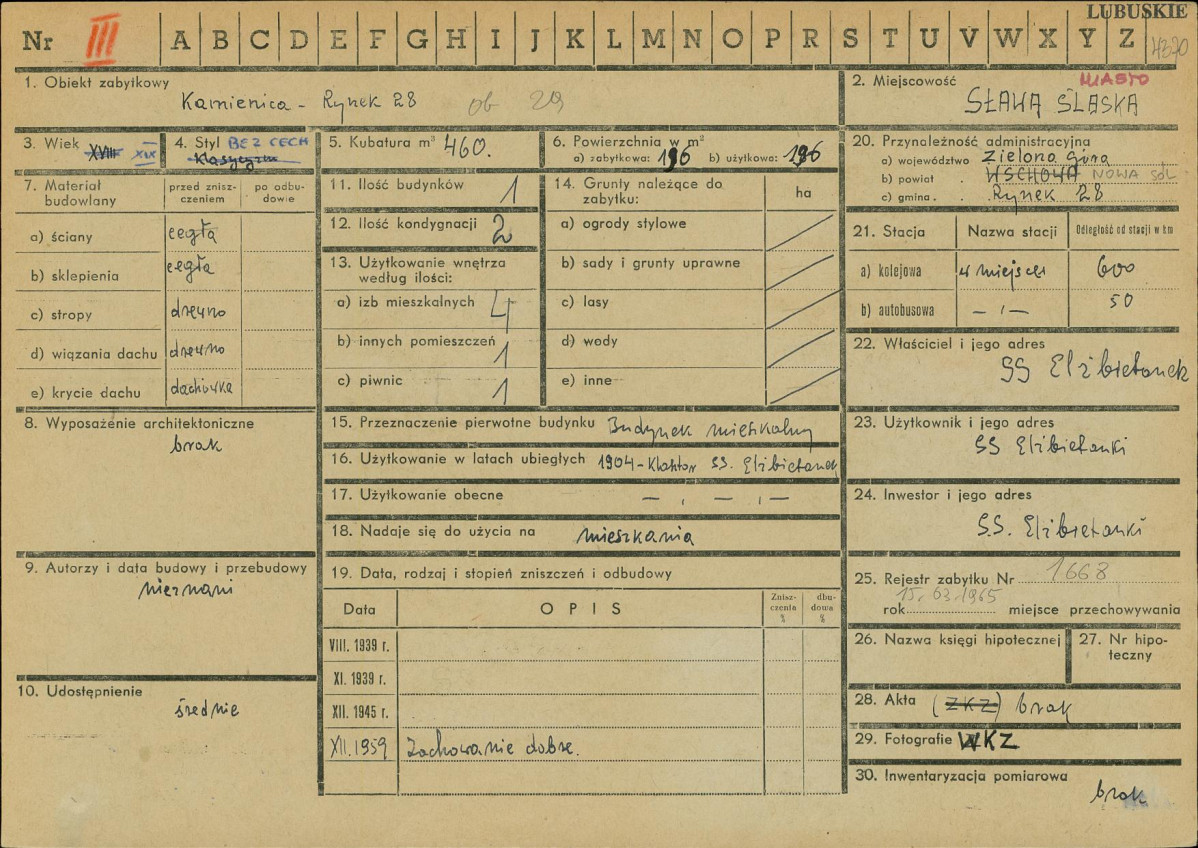 LUBUSKIE
Nr III A B C D E F G H I J K L M N O P R S T U V W X Y Z 4320
1. Obiekt zabytkowy
Kamienica - Rynek 28 ob 29
2. Miejscowość MIASTO
SŁAWA ŚLĄSKA
3. Wiek XVIII XIX
4. Styl BEZ CECH
Klasycyzm
5. Kubatura m³ 460.
6. Powierzchnia w m²
a) zabytkowa: 196 b) użytkowa: 196
7. Materiał budowlany
przed zniszczeniem
po odbudowie
a) ściany cegła
b) sklepienia cegła
c) stropy drewno
d) wiązania dachu drewno
e) krycie dachu dachówka
8. Wyposażenie architektoniczne
brak
9. Autorzy i data budowy i przebudowy
nieznani
10. Udostępnienie
średnie
11. Ilość budynków 1
12. Ilość kondygnacji 2
13. Użytkowanie wnętrza
według ilości:
a) izb mieszkalnych 4
b) innych pomieszczeń 1
c) piwnic 1
14. Grunty należące do
zabytku: ha
a) ogrody stylowe
b) sady i grunty uprawne
c) lasy
d) wody
e) inne
15. Przeznaczenie pierwotne budynku Budynek mieszkalny
16. Użytkowanie w latach ubiegłych 1904 - Klasztor SS. Elżbietanek
17. Użytkowanie obecne — , — , —
18. Nadaje się do użycia na mieszkania
19. Data, rodzaj i stopień zniszczeń i odbudowy
Data OPIS Zniszczenia % dbudowa %
VIII. 1939 r.
XI. 1939 r.
XII. 1945 r.
XII. 1959 Zachowanie dobre.
20. Przynależność administracyjna
a) województwo Zielona Góra
b) powiat . WSCHOWA NOWA SÓL
c) gmina . . Rynek 28
21. Stacja Nazwa stacji Odległość od stacji w km
a) kolejowa w miejscu 600
b) autobusowa — , — 50
22. Właściciel i jego adres
SS Elżbietanek
23. Użytkownik i jego adres
SS Elżbietanki
24. Inwestor i jego adres
S.S. Elżbietanki
25. Rejestr zabytku Nr 1668
15.03.1965
rok miejsce przechowywania
26. Nazwa księgi hipotecznej
27. Nr hipoteczny
28. Akta (ZKZ) brak
29. Fotografie WKZ
30. Inwentaryzacja pomiarowa
brak